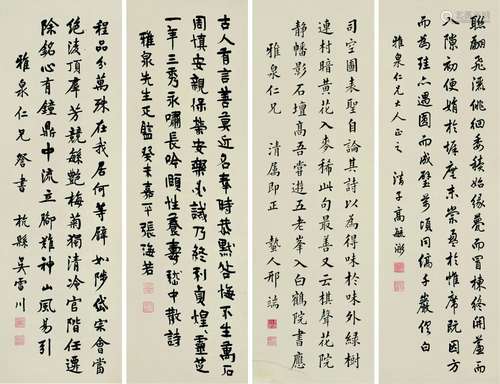 聯翩飛洄委積始緣甍而冒棟終開簾而
入隙初便娟於墀廡末縈盈於帷席既因方
而為珪亦遇圓而成璧萬頃同縞千巖俱白
雅泉仁兄大人正之 高毓浵
司空圖表聖自論其詩以為得味於味外綠樹
連村暗黃花入麥稀此句最善又云棋聲花院
靜幡影石壇高吾嘗遊五老峯入白鶴院書應
雅泉仁兄 清屬即正 蟄人邢端
古人有言善莫近名奉時恭默咎悔不生萬石
周慎安親保榮安樂必誡乃終利貞煌煌靈芝
一年三秀永嘯長吟頤性養壽嵇中散詩
雅泉先生正 癸未嘉平張海若
程品分萬殊在我居何等辟如陟岱宗會當
絕凌頂羣芳競豔梅菊獨清冷官階任遷
除銘心有鐘鼎中流立腳難神山風易引
雅泉仁兄 書 杭縣吳雪川